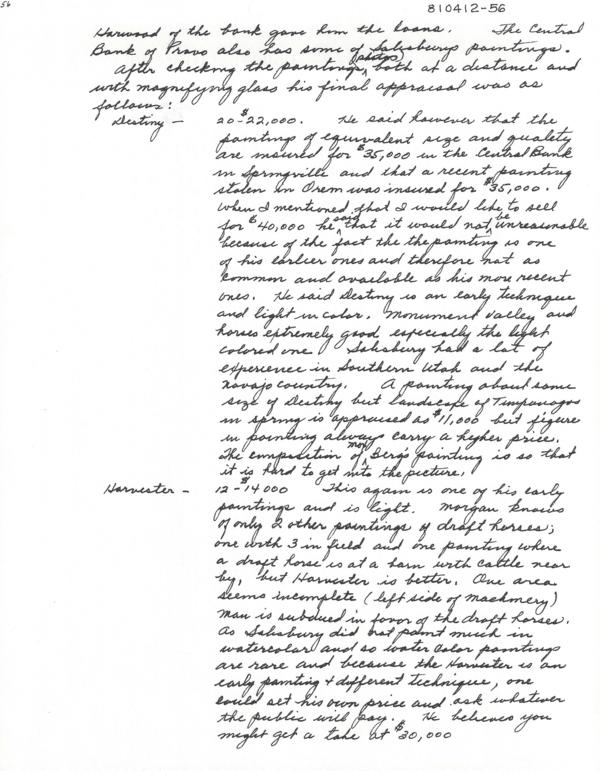 56
810412-56
Harwood of the bank gave him the loans. The Central
Bank of Provo also has some of Salisburys paintings.
After checking the paintings (photos) both at a distance and
with magnifying glass his final appraisal was as
follows:
Destiny — 20-$22,000. He said however that the
paintings of equivalent size and quality
are insured for $35,000 in the Central Bank
in Springville and that a recent painting
stolen in Orem was insured for $35,000.
When I mentioned that I would like to sell
for $40,000 he said that it would not be unreasonable
because of the fact the the painting is one
of his earlier ones and therefore not as
common and available as his more recent
ones. He said Destiny is an early technique
and light in color. Monument Valley and
horses extremely good especially the light
colored one Salisbury had a lot of
experience in Southern Utah and the
Navajo country. A painting about same
size of Destiny but landscape of Timpanogos
in spring is appraised as $11,000 but figure
in painting always carry a higher price.
The composition of Berg's painting is so that
it is hard to get into the picture.
Harvester — 12-$14000 This again is one of his early
paintings and is light. Morgan knows
of only 2 other paintings of draft horses;
one with 3 in field and one painting where
a draft horse is at a barn with cattle near
by, but Harvester is better. One area
seems incomplete (left side of machinery)
Man is subdued in favor of the draft horses.
As Salisbury did not paint much in
watercolar and so water color paintings
are rare and because the Harvester is an
early painting + different technique, one
could set his own price and ask whatever
the public will pay. He believes you
might get a take at $30,000